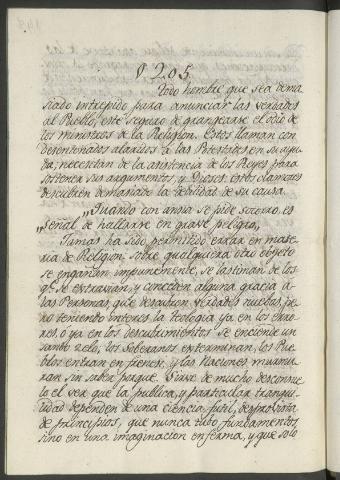 § 205.
Todo hombre que sea dema
siado intrepido para anunciar las verdades
al Pueblo, esté seguro de grangearse el odio de
los ministros de la Religion. Estos llaman con
desentonados alaridos á las Potestades en su ayu
da; necesitan de la asistencia de los Reyes para
sostener sus argumentos, y Dioses. Estos clamores
descubren demasiado la debilidad de su causa.
„Quando con ansia se pide socorro, es
„señal de hallarse en grave peligro„
Jamas ha sido permitido errar en mate
ria de Religion. Sobre qualquiera otro objeto
se engañan impunemente, se lastiman de los
qe. se extravian, y conceden alguna gracia á
las Personas, que descubren verdades nuebas, pe
ro teniendo interes la Teologia ya en los erro
res, o ya en los descubrimientos se enciende un
santo zelo, los Soberanos exterminan, los Pue
blos entran en frenesi, y las Naciones murmu
ran sin saber porque. Sirve de mucho desconsue
lo el ver que la publica, y particular tranqui
lidad dependen de una ciencia futil, desprovista
de principios, que nunca tubo fundamentos
sino en una imaginacion enferma, y que solo